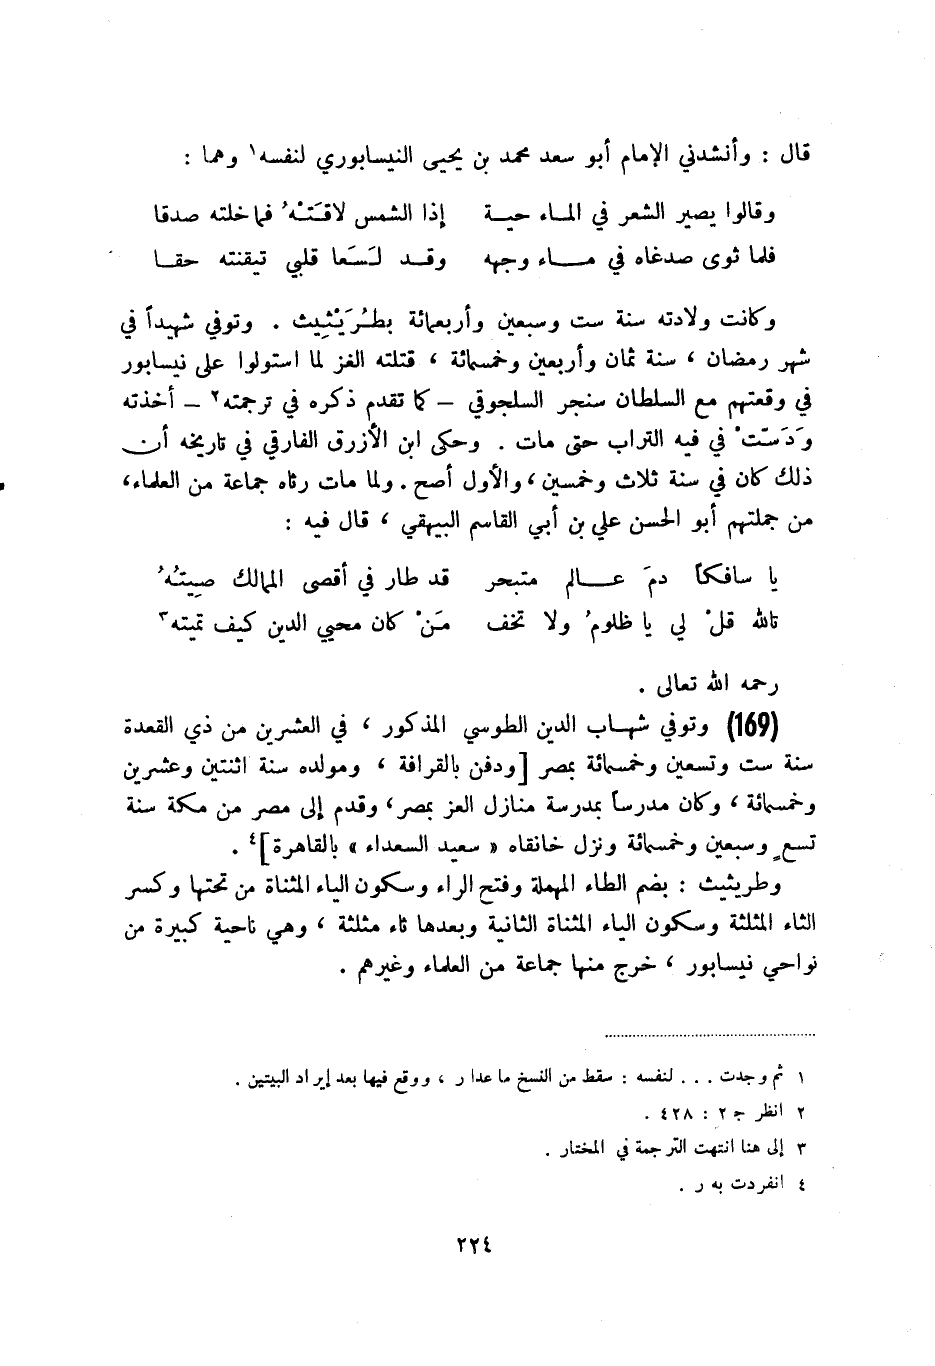 قال : وأنشدني الإمام أبو سعد محمد بن يحيى النيسابوري لنفسه١ وهما :
وقالوا يصير الشعر في الماء حية إذا الشمس لاقَتْهُ فما خلته صدقا
فلما ثوى صدغاه في مـاء وجهه وقـد لَسَعا قلبي تيقنته حقـا
وكانت ولادته سنة ست وسبعين وأربعمائة بطُرَيْثِيث . وتوفي شهيداً في
شهر رمضان ، سنة ثمان وأربعين وخمسمائة ، قتلته الغز لما استولوا على نيسابور
في وقعتهم مع السلطان سنجر السلجوقي – كما تقدم ذكره في ترجمته٢ – أخذته
وَدَسَّتْ في فيه التراب حتى مات . وحكى ابن الأزرق الفارقي في تاريخه أن
ذلك كان في سنة ثلاث وخمسين ، والأول أصح . ولما مات رثاه جماعة من العلماء،
من جملتهم أبو الحسن علي بن أبي القاسم البيهقي ، قال فيه :
يا سافكاً دمَ عـالم متبحر قد طار في أقصى الممالك صِيتُهُ
تالله قلْ لي يا ظلومُ ولا تخف مَنْ كان محيي الدين كيف تميته٣
رحمه الله تعالى .
(169) وتوفي شهـاب الدين الطوسي المذكور ، في العشرين من ذي القعدة
سنة ست وتسعين وخمسمائة بمصر [ودفن بالقرافة ، ومولده سنة اثنتين وعشرين
وخمسمائة ، وكان مدرساً بمدرسة منازل العز بمصر، وقدم إلى مصر من مكة سنة
تسعٍ وسبعين وخمسمائة ونزل خانقاه « سعيد السعداء » بالقاهرة]٤ .
وطريثيث : بضم الطاء المهملة وفتح الراء وسكون الياء المثناة من تحتها وكسر
الثاء المثلثة وسكون الياء المثناة الثانية وبعدها ثاء مثلثة ، وهي ناحية كبيرة من
نواحي نيسابور ، خرج منها جماعة من العلماء وغيرهم .
١ ثم وجدت . . . لنفسه : سقط من النسخ ما عدا ر ، ووقع فيها بعد إيراد البيتين .
٢ انظر ج ٢ : ٤٢٨ .
٣ إلى هنا انتهت الترجمة في المختار .
٤ انفردت به ر .
٢٢٤